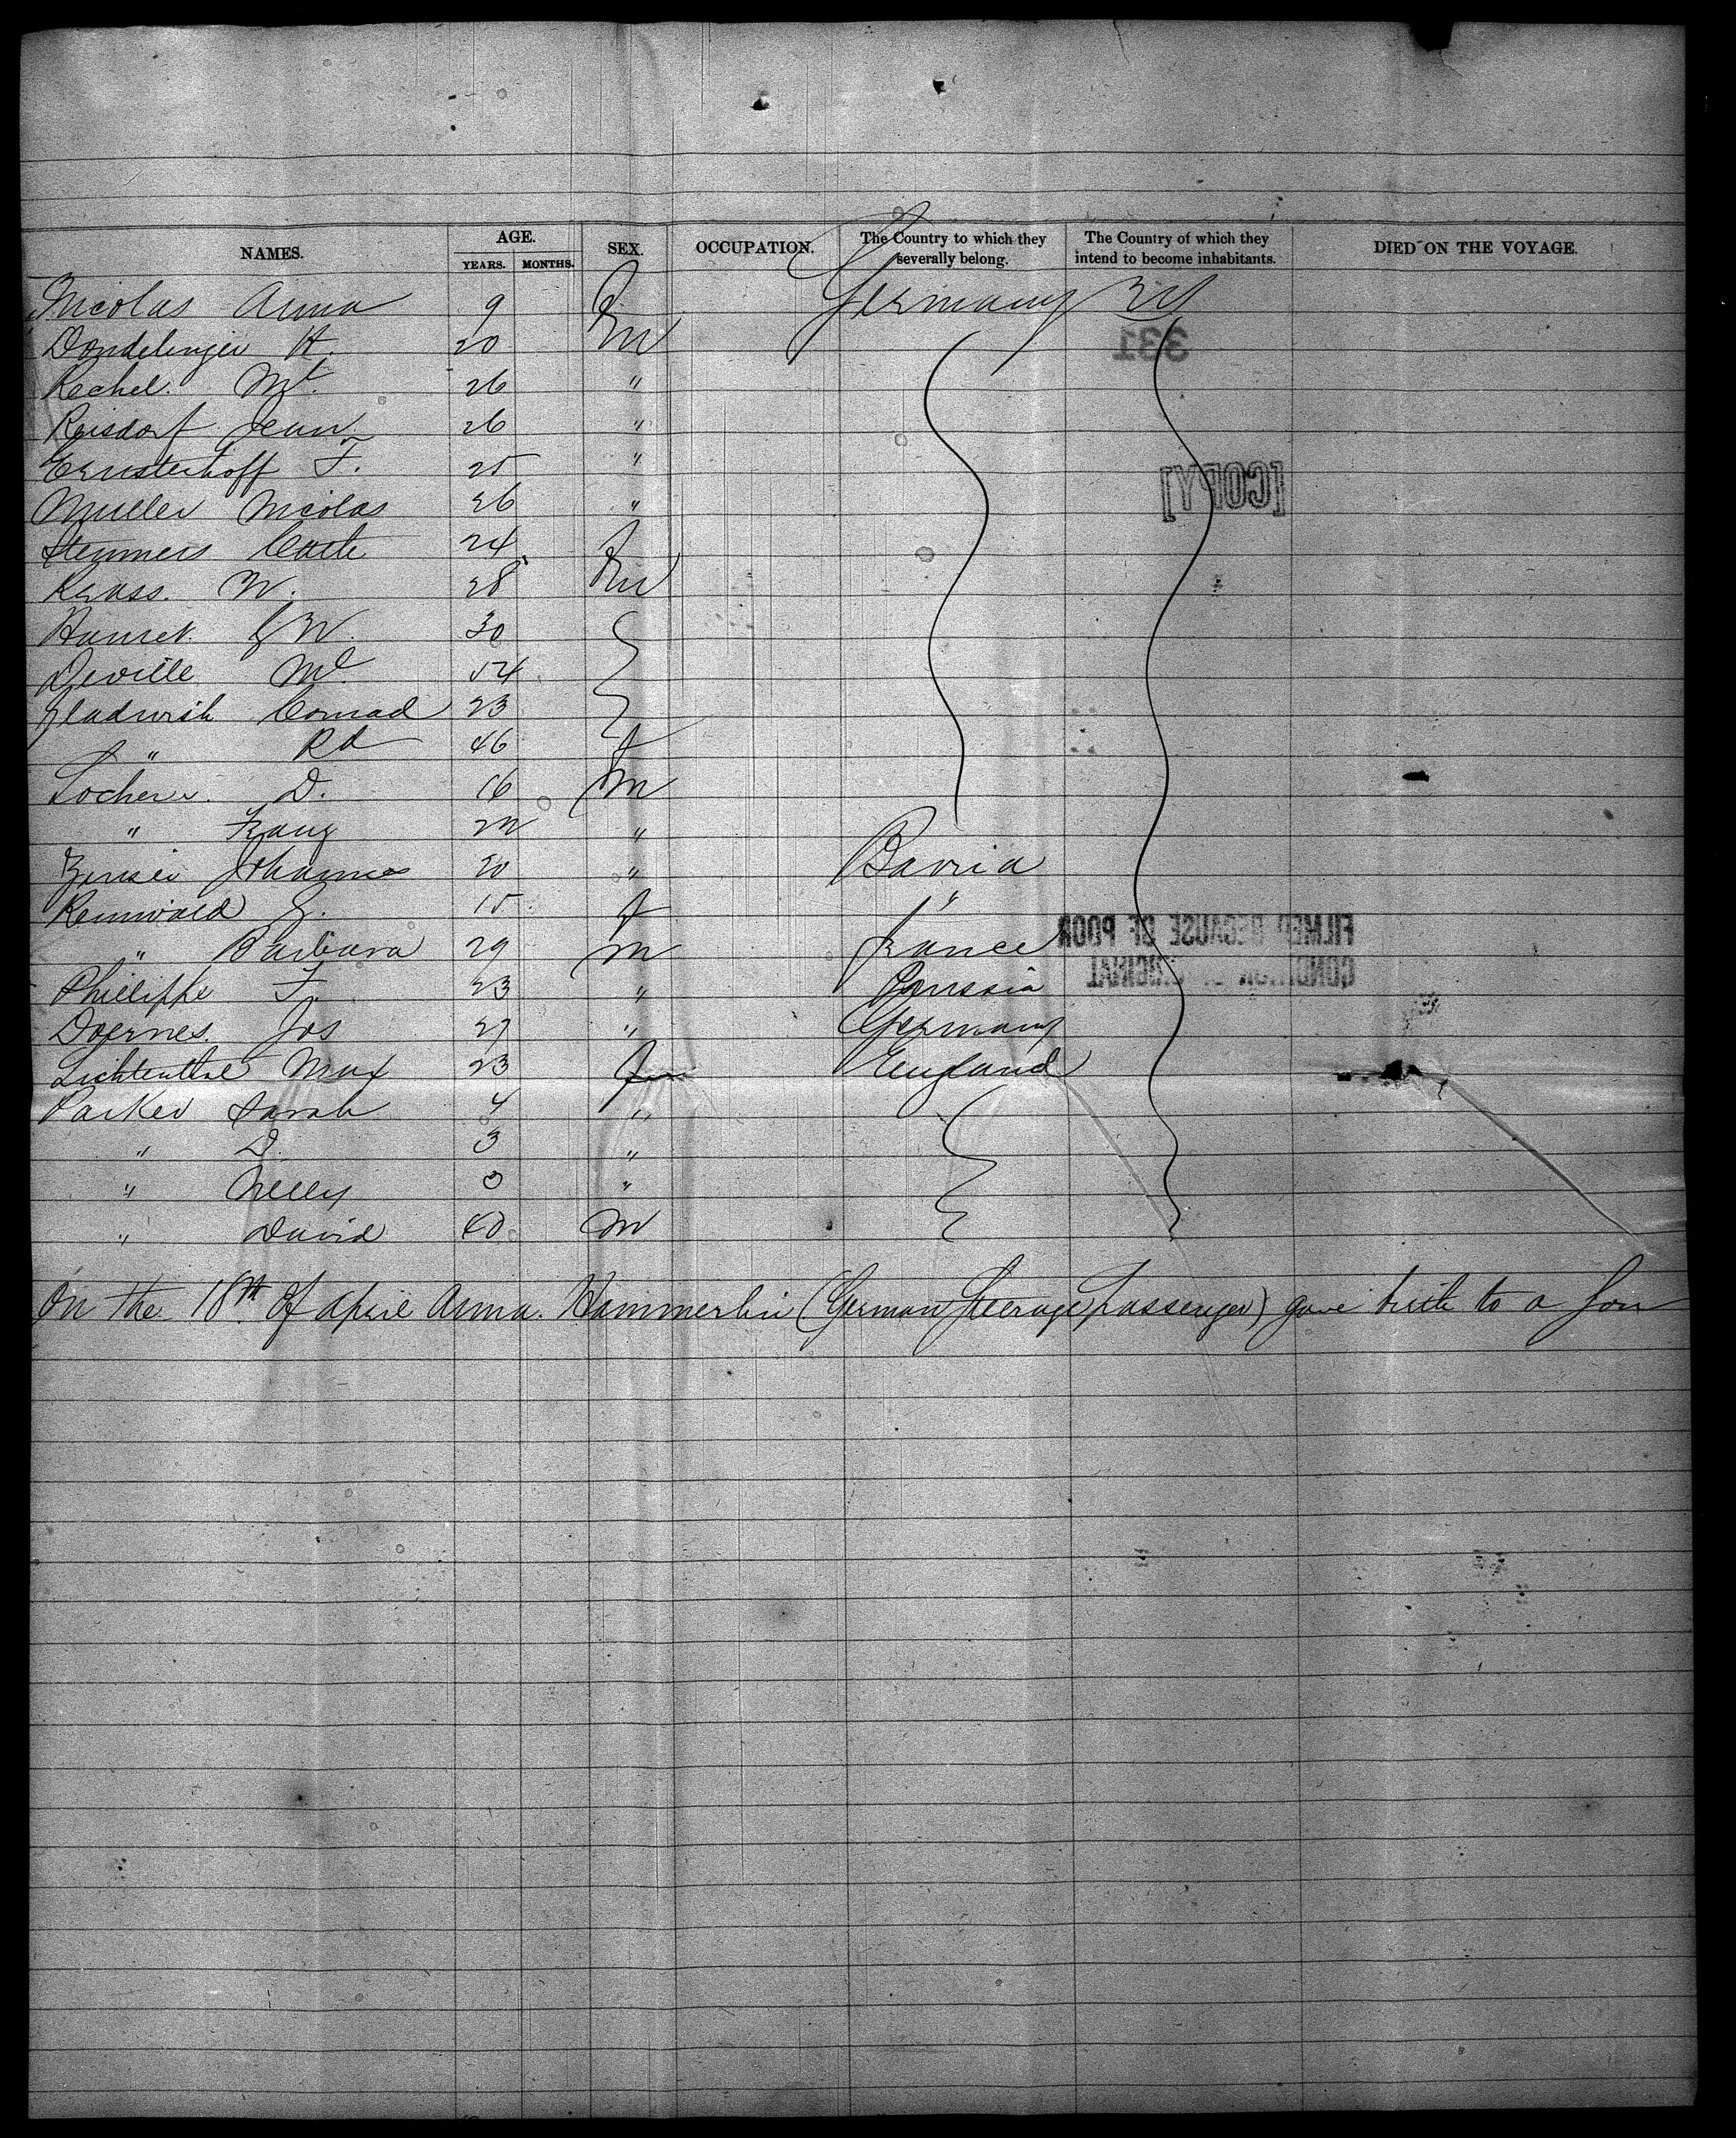 NAMES. AGE. SEX. OCCUPATION. The Country to which they severally belong. The Country of which they intend to become inhabitants. DIED ON THE VOYAGE.
YEARS. MONTHS.
Nicolas Anna 9 f Germany
331
Dondelinger H. 20 m
Rechel. Mt. 26 "
Reisdorf Jean 26 "
Ernsterhoff F. 25 "
Muller Nicolas 26 "
[COPY]
Stemmers Cath 24 f
Krass. N. 28 m
Hamet. 30
Deville Ml 54
Conrad 23
" Rd 46 f
Locherer. D. 16 m
" Franz 22 "
Johannes 20 " Bavria
Rennvald G. 15 f "
" Barbara 29 m France
FILMED BECAUSE OF POOR
CONDITION OF ORIGINAL
Phillippe F. 23 " Prussia
Doernes. Jos 27 " Germany
Lichtenthal Max 23 England
Parker Sarah 4 "
" D. 3 "
" Nelly 0 "
" David 40 m
On the 18th Of April Anna. Hammerlin (German Steerage passenger) gave birth to a Son